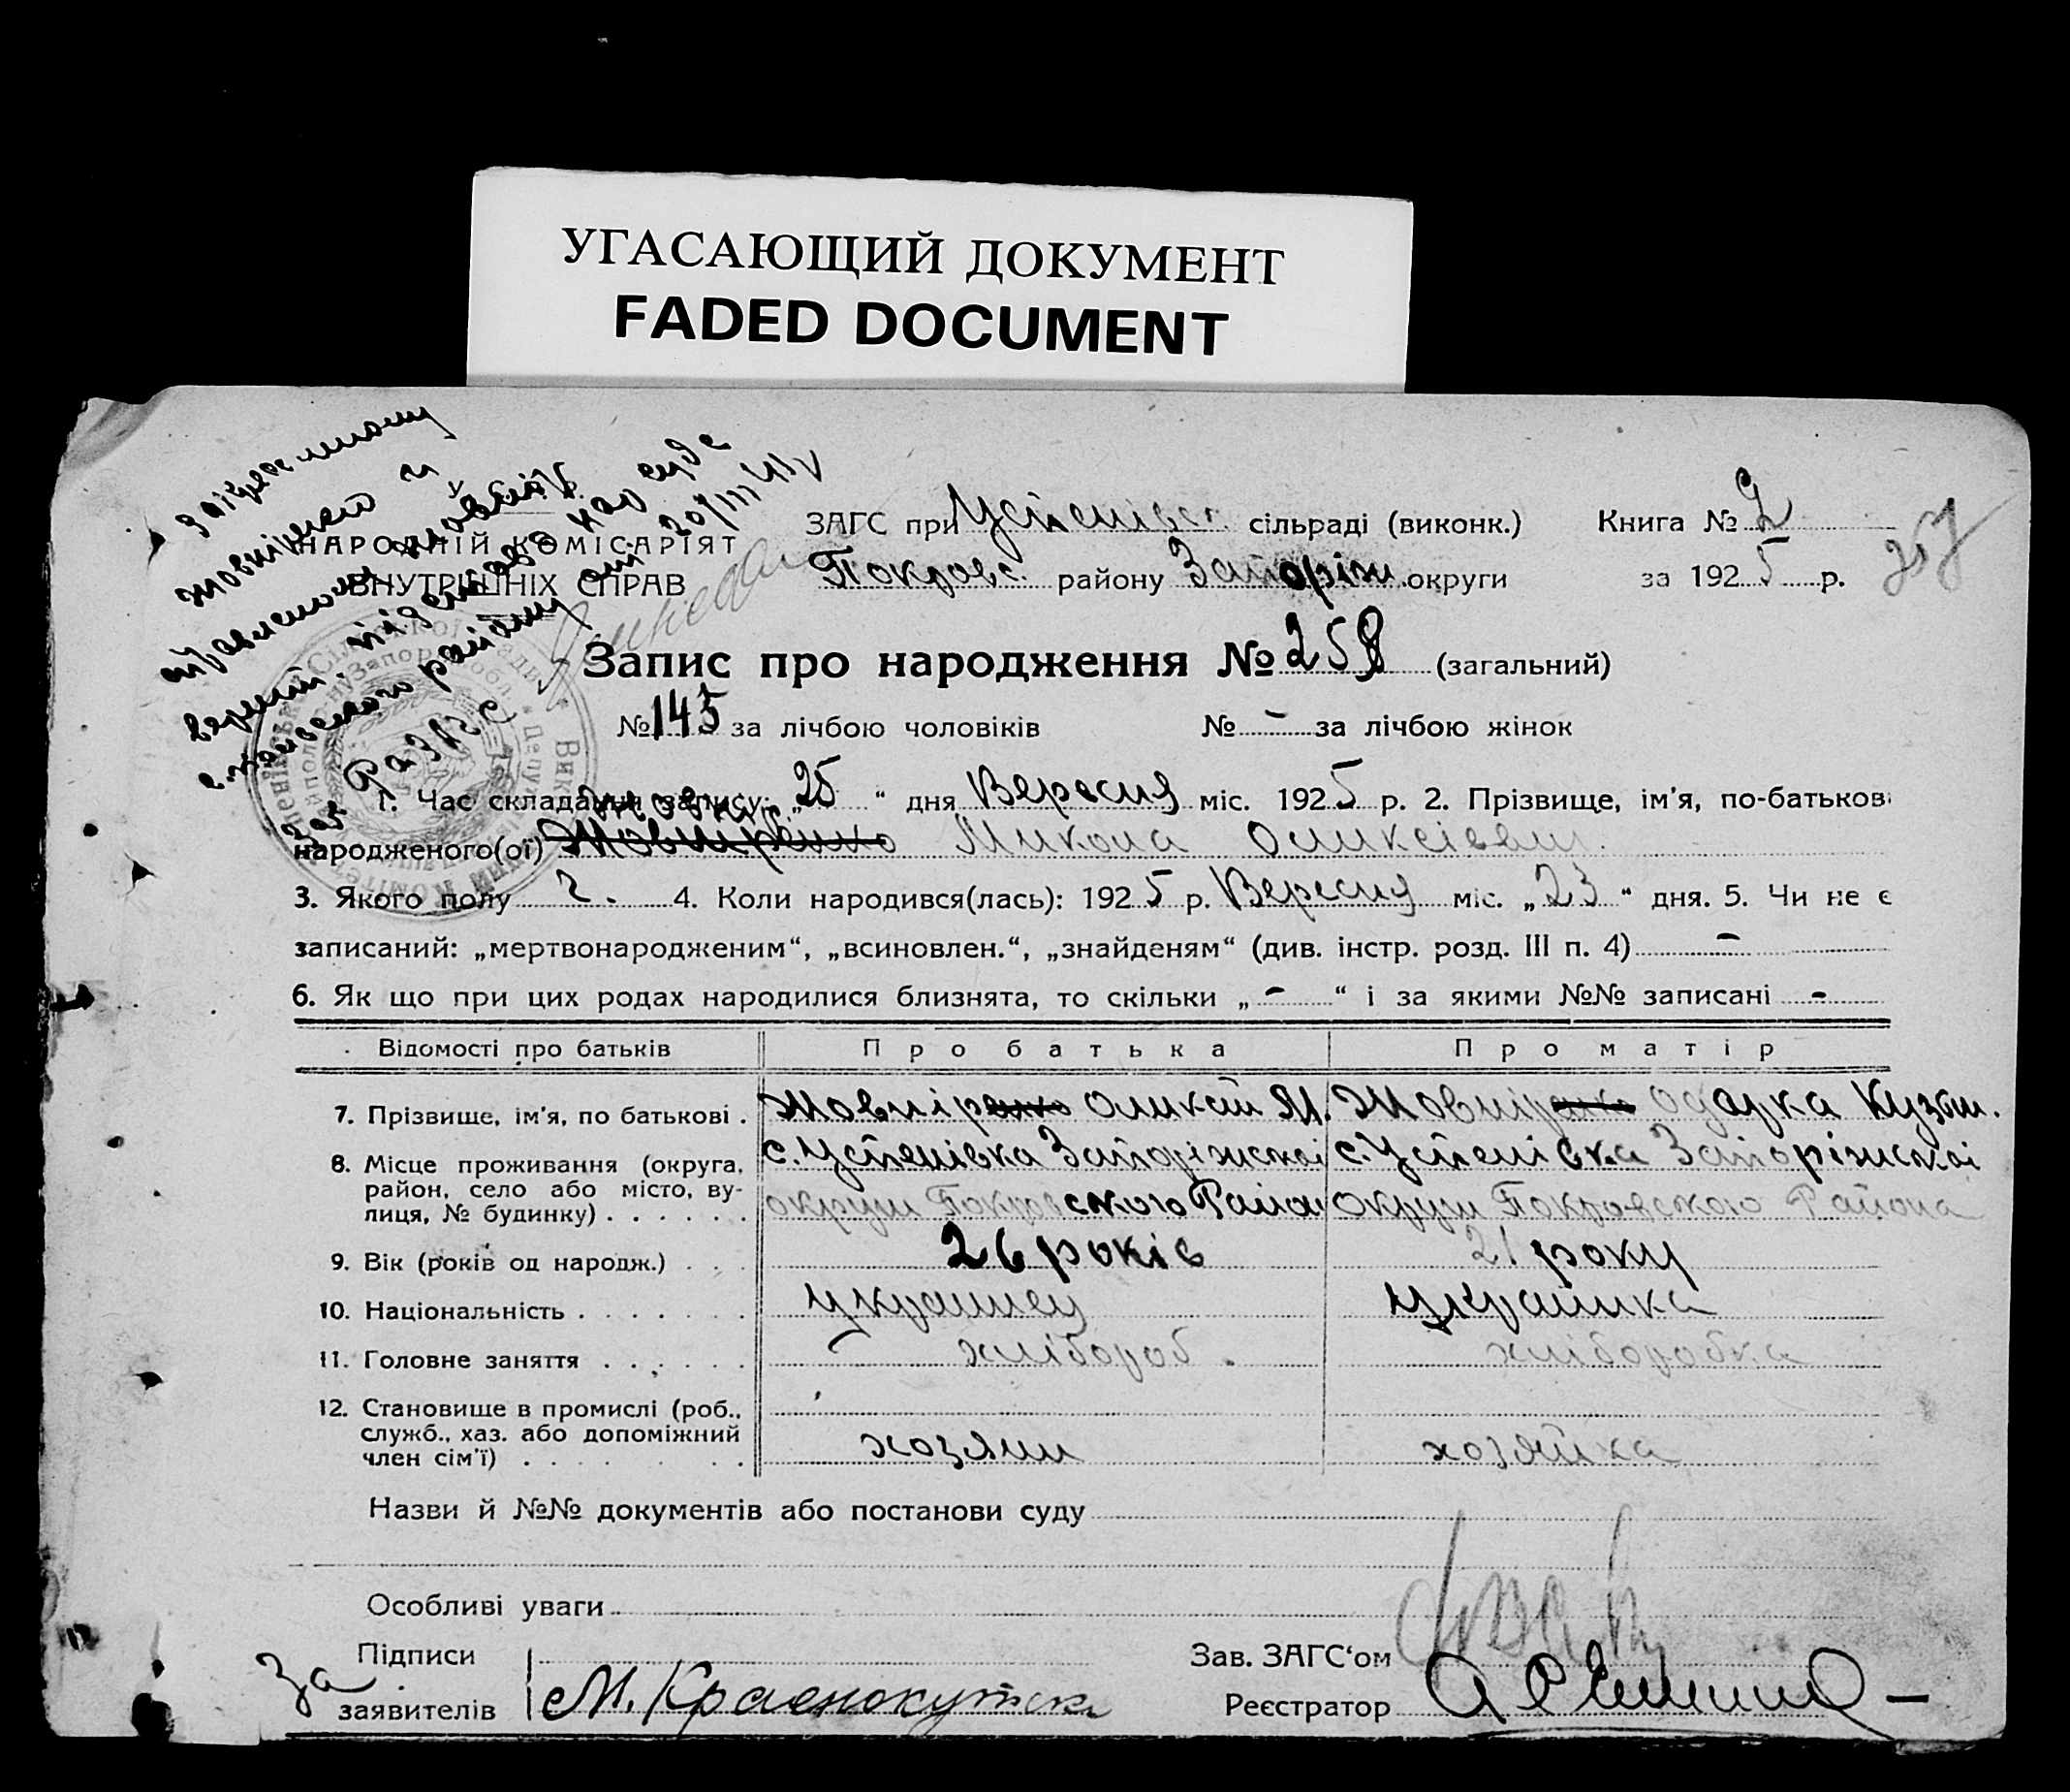 УГАСАЮЩИЙ ДОКУМЕНТ
FADED DOCUMENT
НАРОДНІЙ КОМІСАРІЯТ
ВНУТРІШНІХ СПРАВ
ЗАГС при Успенівск. сільраді (виконк.) Книга № 2
Покровс. району Запоріж. округи за 1925 р.
257
Запис про народження № 258 (загальний)
№ 145 за лічбою чоловіків № - за лічбою жінок
1. Час складання запису: „25“ дня Вересня міс. 1925 р. 2. Прізвище, ім'я, по-батькові
Жовнір.
народженого(ої) Жовниренко Микола Оликсієвич.
3. Якого полу ч. 4. Коли народився(лась): 1925 р. Вересня міс. „23“ дня. 5. Чи не є
записаний: „мертвонародженим“, „всиновлен.“, „знайденям“ (див. інстр. розд. III п. 4) -
6. Як що при цих родах народилися близнята, то скільки „-“ і за якими №№ записані -
Відомості про батьків Про батька Про матір
7. Прізвище, ім'я, по батькові . Жовніренко Оликсій М. Жовніренко Одарка Кузьм.
8. Місце проживання (округа, с. Успенівка Запоріжської с. Успенівка Запоріжської
район, село або місто, ву-
лиця, № будинку) . . . . . . округи Покровського Району округи Покровського Района
9. Вік (років од народж.) . . . 26 років 21 року
10. Національність . . . . . . . українец українка
11. Головне заняття . . . . . . хлібороб. хліборобка
12. Становище в промислі (роб.,
служб., хаз. або допоміжний хозяин хозяйка
член сім'ї) . . . . . . . .
Назви й №№ документів або постанови суду
Особливі уваги
Підписи Зав. ЗАГС'ом
За заявителів М. Краснокутск Реєстратор